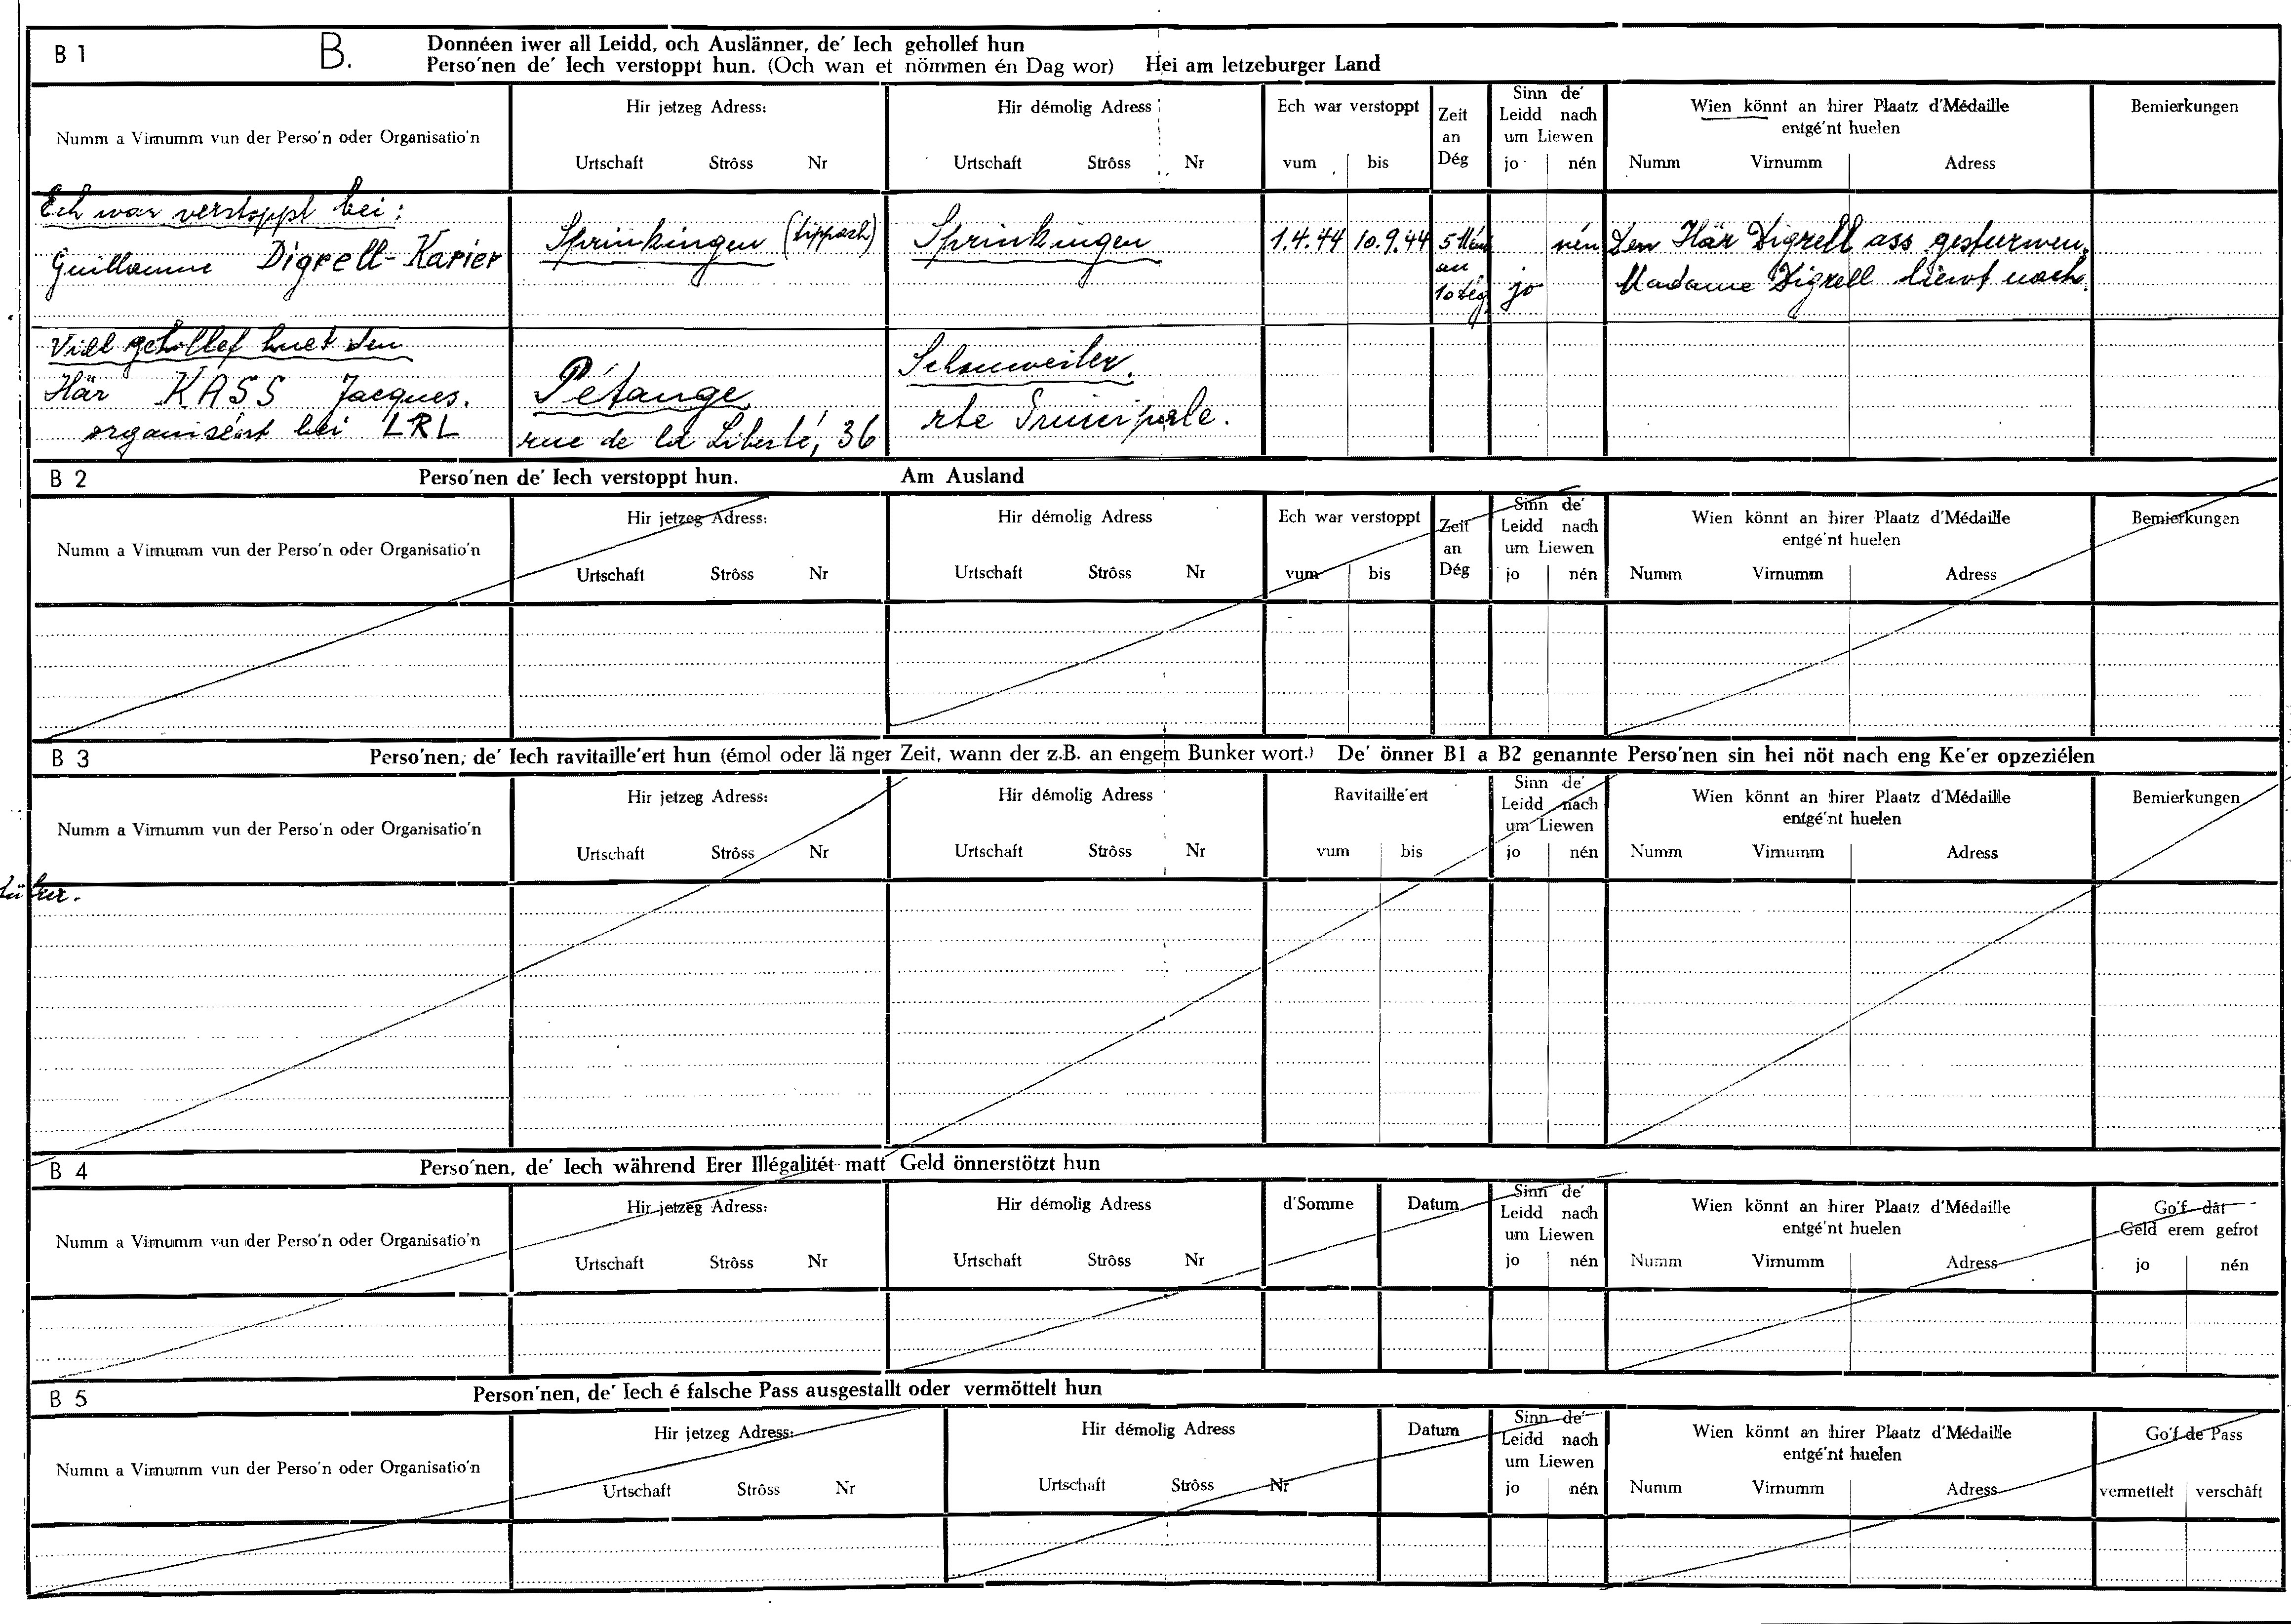 B 1 B. Donnéen iwer all Leidd, och Auslänner, de' Iech gehollef hun
Perso'nen de' Iech verstoppt hun. (Och wan et nömmen én Dag wor) Hei am letzeburger Land
Numm a Virnumm vun der Perso'n oder Organisatio'n
Hir jetzeg Adress:
Urtschaft Strôss Nr
Hir démolig Adress
Urtschaft Strôss Nr
Ech war verstoppt
vum bis
Zeit
an
Dég
Sinn de'
Leidd nach
um Liewen
jo nén
Wien könnt an hirer Plaatz d'Médaille
entgé'nt huelen
Numm Virnumm Adress
Bemierkungen
Ech war verstoppt bei:
Guillaume Digrell-Karier
Sprinkingen (Dippach)
Sprinkingen
1.4.44 10.9.44
5 Mén
an
10 Dég
nén
jo
Den Här Digrell ass gesturwen.
Madame Digrell liewt nach.
Viel gehollef huet den
Här KASS Jacques.
organiséiert bei LRL
Pétange
rue de la Liberté, 36
Schouweiler.
rte Principale.
B 2 Perso'nen de' Iech verstoppt hun. Am Ausland
Numm a Virnumm vun der Perso'n oder Organisatio'n
Hir jetzeg Adress:
Urtschaft Strôss Nr
Hir démolig Adress
Urtschaft Strôss Nr
Ech war verstoppt
vum bis
Zeit
an
Dég
Sinn de'
Leidd nach
um Liewen
jo nén
Wien könnt an hirer Plaatz d'Médaille
entgé'nt huelen
Numm Virnumm Adress
Bemierkungen
B 3 Perso'nen, de' Iech ravitaille'ert hun (émol oder länger Zeit, wann der z.B. an engem Bunker wort.) De' önner B1 a B2 genannte Perso'nen sin hei nöt nach eng Ke'er opzeziélen
Numm a Virnumm vun der Perso'n oder Organisatio'n
Hir jetzeg Adress:
Urtschaft Strôss Nr
Hir démolig Adress
Urtschaft Strôss Nr
Ravitaille'ert
vum bis
Sinn de'
Leidd nach
um Liewen
jo nén
Wien könnt an hirer Plaatz d'Médaille
entgé'nt huelen
Numm Virnumm Adress
Bemierkungen
B 4 Perso'nen, de' Iech während Erer Illégalitét matt Geld önnerstötzt hun
Numm a Virnumm vun der Perso'n oder Organisatio'n
Hir jetzeg Adress:
Urtschaft Strôss Nr
Hir démolig Adress
Urtschaft Strôss Nr
d'Somme
Datum
Sinn de'
Leidd nach
um Liewen
jo nén
Wien könnt an hirer Plaatz d'Médaille
entgé'nt huelen
Numm Virnumm Adress
Go'f dât
Geld erem gefrot
jo nén
B 5 Person'nen, de' Iech é falsche Pass ausgestallt oder vermöttelt hun
Numm a Virnumm vun der Perso'n oder Organisatio'n
Hir jetzeg Adress:
Urtschaft Strôss Nr
Hir démolig Adress
Urtschaft Strôss Nr
Datum
Sinn de'
Leidd nach
um Liewen
jo nén
Wien könnt an hirer Plaatz d'Médaille
entgé'nt huelen
Numm Virnumm Adress
Go'f de Pass
vermettelt verschâft